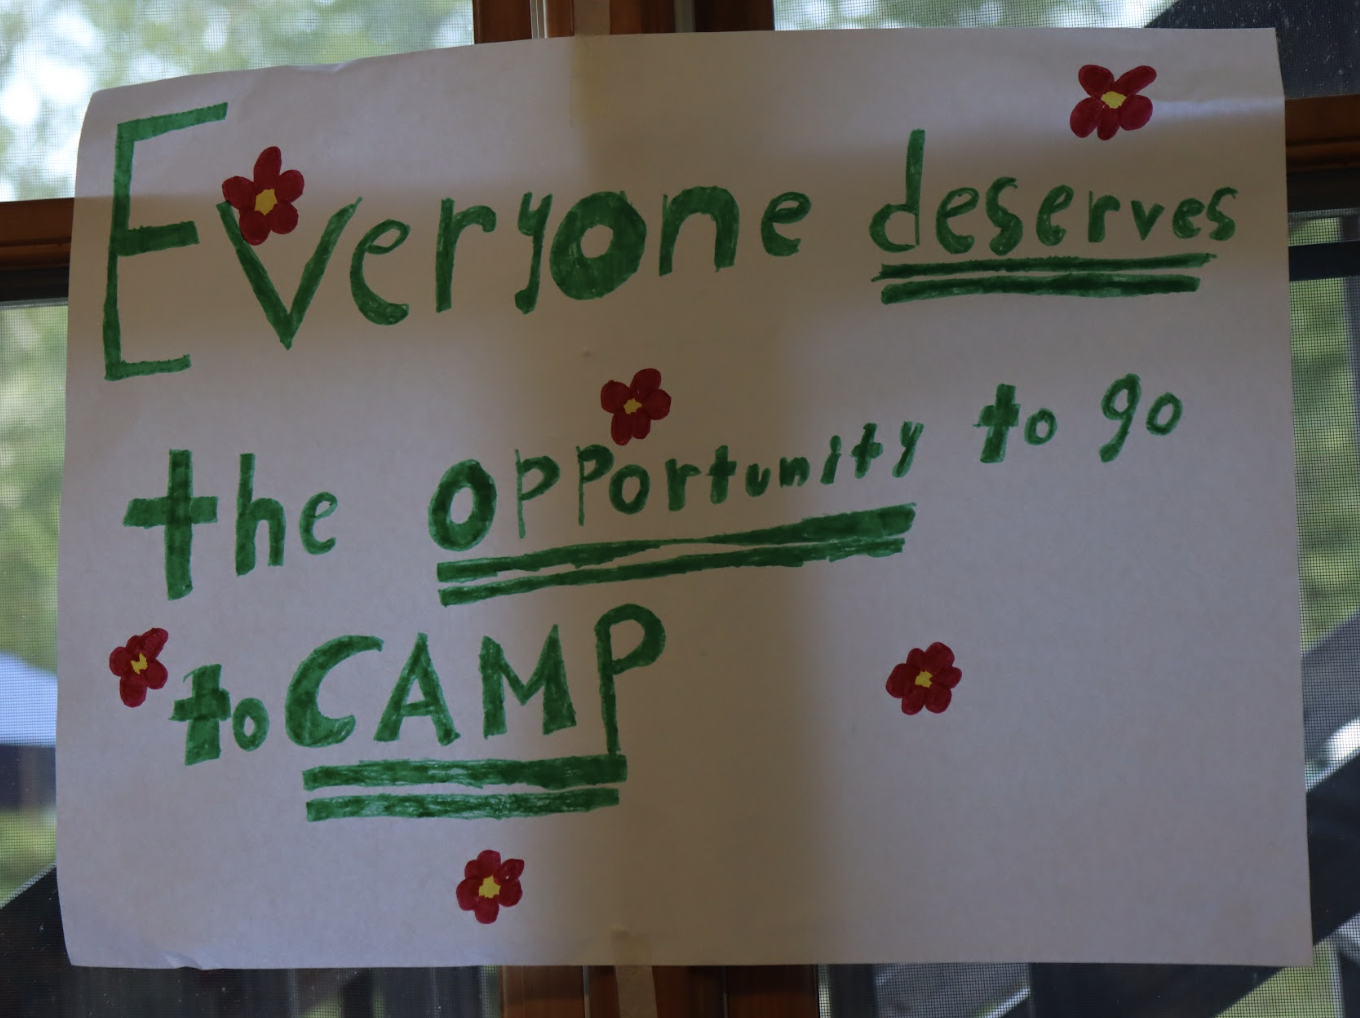 Everyone deserves
the opportunity to go
to CAMP